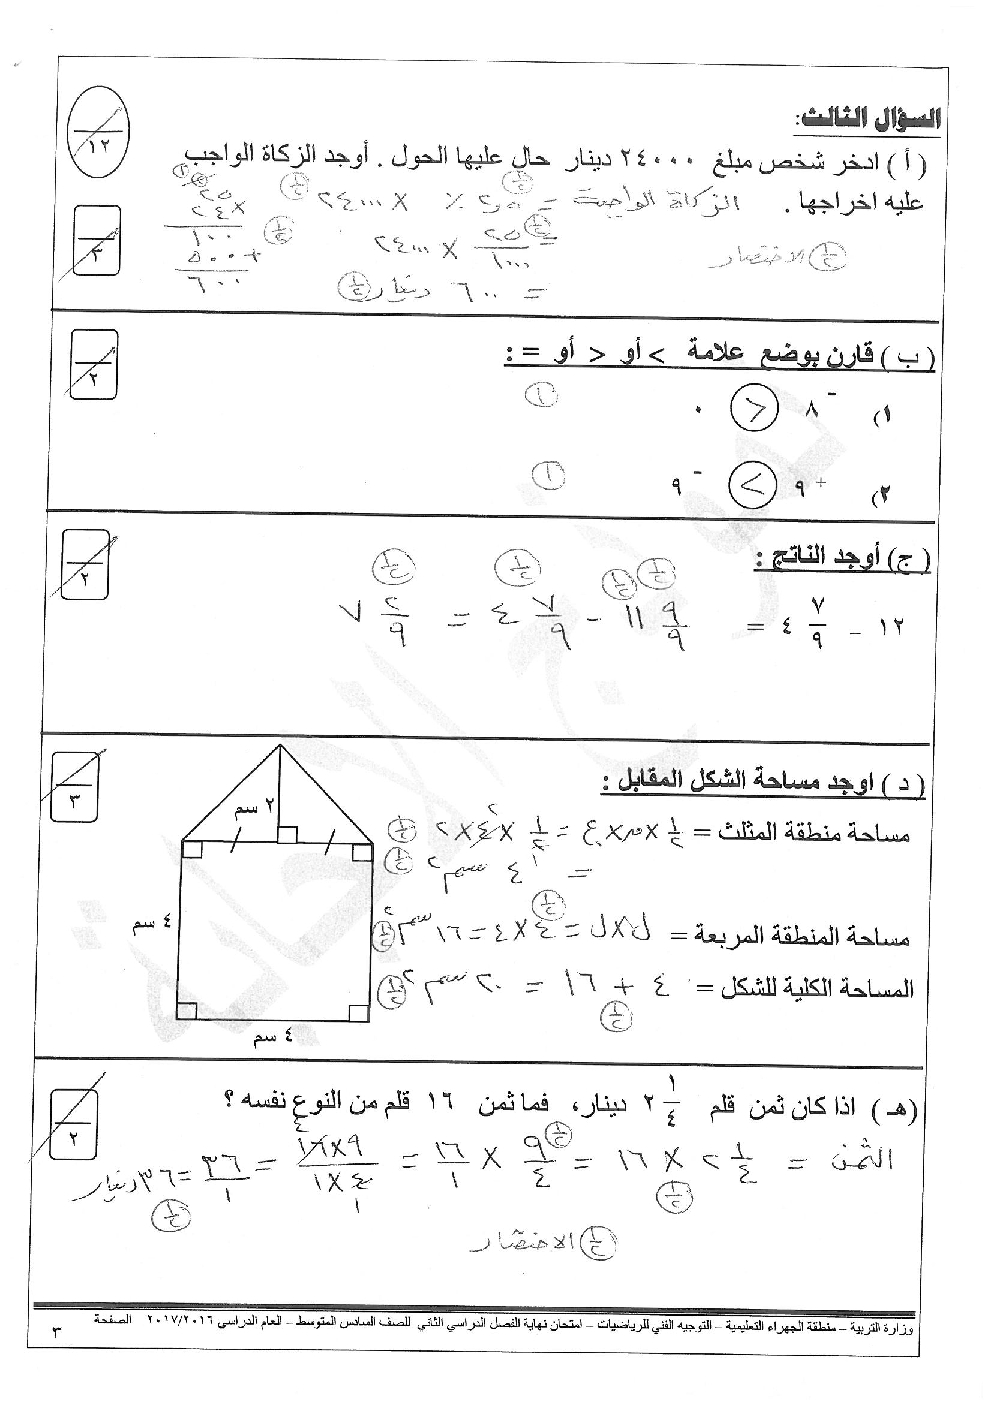 السؤال الثالث:
١٢
( أ ) ادخر شخص مبلغ ٢٤٠٠٠ دينار حال عليها الحول . أوجد الزكاة الواجب
عليه اخراجها . الزكاة الواجبة = ٢٫٥ ٪ × ٢٤٠٠٠
٣
= ٢٥/١٠٠٠ × ٢٤٠٠٠
= ٦٠٠ دينار
الاختصار ١/٢
٢٥
٢٤ ×
١٠٠
٥٠٠ +
٦٠٠
( ب ) قارن بوضع علامة > أو < أو = :
٢
١) ⁻٨ < ٠ ١
٢) ⁺٩ > ⁻٩ ١
( ج ) أوجد الناتج :
٢
١٢ − ٤ ٧/٩ = ١١ ٩/٩ − ٤ ٧/٩ = ٧ ٢/٩
( د ) اوجد مساحة الشكل المقابل :
٣
مساحة منطقة المثلث = ١/٢ × ق × ع = ١/٢ × ٤ × ٢
= ٤ سم٢
مساحة المنطقة المربعة = ل × ل = ٤ × ٤ = ١٦ سم٢
المساحة الكلية للشكل = ٤ + ١٦ = ٢٠ سم٢
٢ سم
٤ سم
٤ سم
( هـ ) اذا كان ثمن قلم ٢ ١/٤ دينار، فما ثمن ١٦ قلم من النوع نفسه ؟
٢
الثمن = ٢ ١/٤ × ١٦ = ٩/٤ × ١٦/١ = ٩×١٦/٤×١ = ٣٦/١ = ٣٦ دينار
الاختصار ١/٢
وزارة التربية – منطقة الجهراء التعليمية – التوجيه الفني للرياضيات – امتحان نهاية الفصل الدراسي الثاني للصف السادس المتوسط – للعام الدراسي ٢٠١٧/٢٠١٦ الصفحة ٣